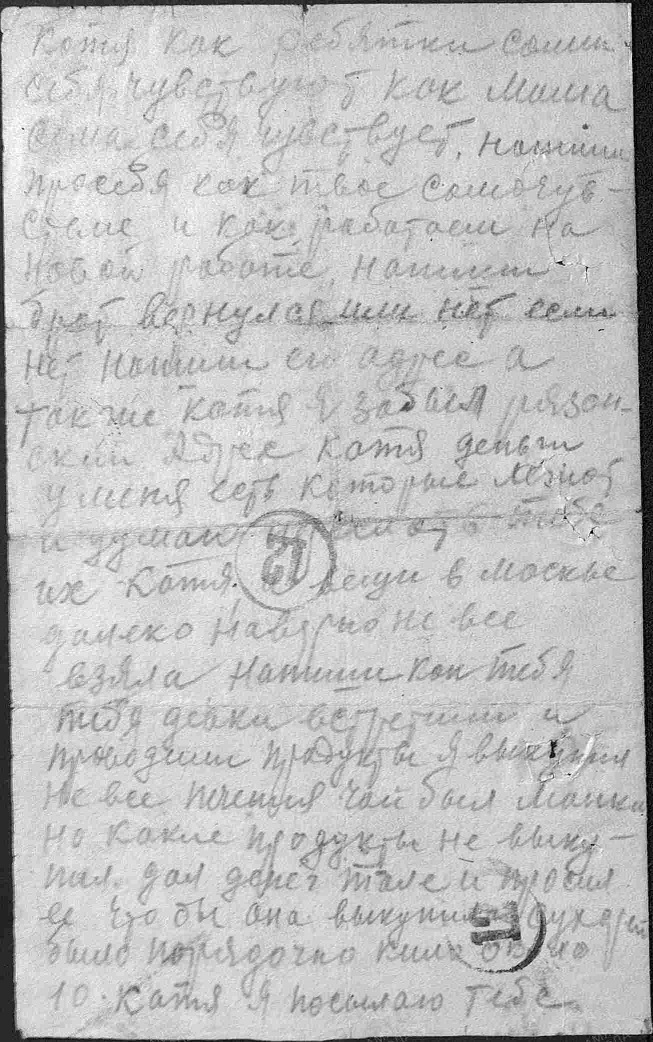 Котя как ребятки сами
себя чувствуют как мама
сама себя чувствует, напиши
просебя как твое самочув-
ствие и как работаеш на
новой работе, напиши
брат вернулся или нет если
нет напиши ег адрес а
также Катя я забыл рязан-
ский Адрес Катя деньги
у меня есть которые
и думаю тибе
их Катя вещи в москве
далеко наверно не все
взяла напиши как тебя
тибя девки встретили и
проводили продукты я выкупил
не все печения чай был
но какие продукты не выку-
пил. дал денег Тале и просил
ее что бы она выкупила сухарей
было порядочно кила около
10. Катя я посылаю тебе